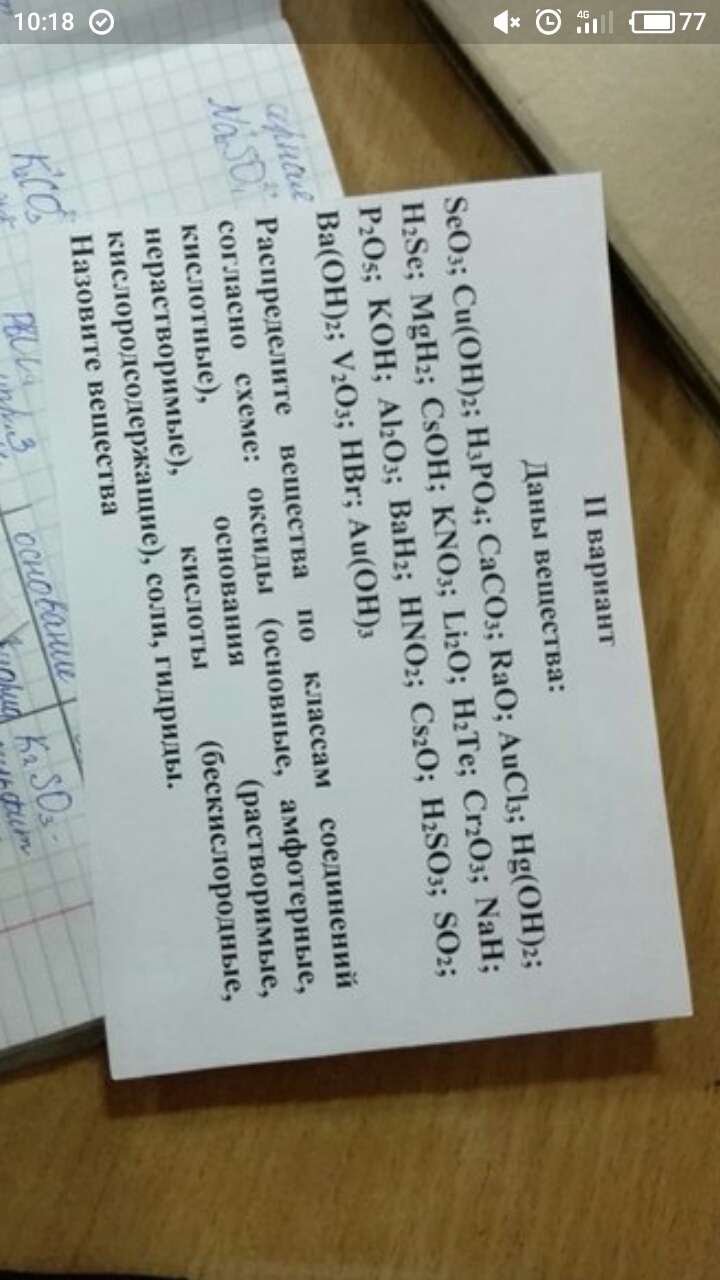 10:18
4G
77
II вариант
Даны вещества:
SeO₃; Cu(OH)₂; H₃PO₄; CaCO₃; RaO; AuCl₃; Hg(OH)₂;
H₂Se; MgH₂; CsOH; KNO₃; Li₂O; H₂Te; Cr₂O₃; NaH;
P₂O₅; KOH; Al₂O₃; BaH₂; HNO₂; Cs₂O; H₂SO₃; SO₂;
Ba(OH)₂; V₂O₃; HBr; Au(OH)₃
Распределите вещества по классам соединений
согласно схеме: оксиды (основные, амфотерные,
кислотные), основания (растворимые,
нерастворимые), кислоты (бескислородные,
кислородсодержащие), соли, гидриды.
Назовите вещества
основание
K₂SO₃-